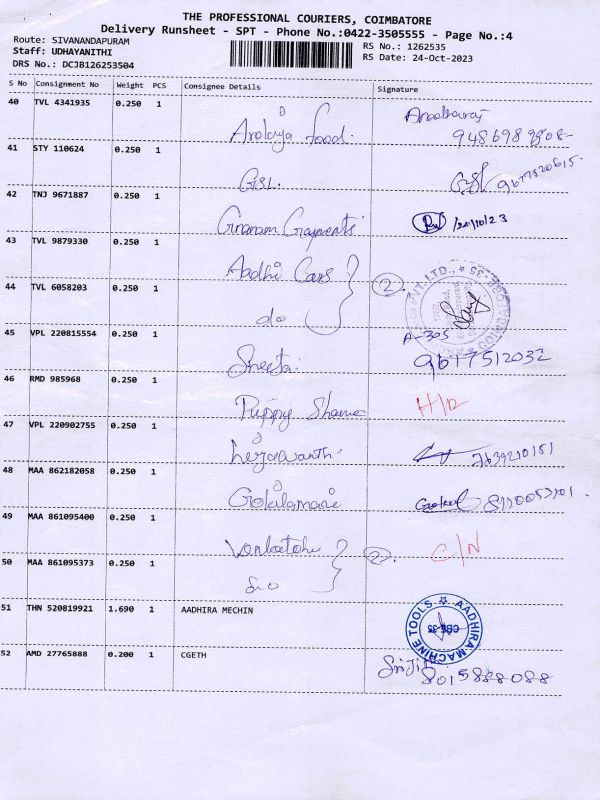 THE PROFESSIONAL COURIERS, COIMBATORE
Delivery Runsheet - SPT - Phone No.:0422-3505555 - Page No.:4
Route: SIVANANDAPURAM
RS No.: 1262535
Staff: UDHAYANITHI
RS Date: 24-Oct-2023
DRS No.: DCJB126253504
S No Consignment No Weight PCS Consignee Details Signature
40 TVL 4341935 0.250 1
Food.
41 STY 110624 0.250 1
GSL.
42 TNJ 9671887 0.250 1
24/10/23
43 TVL 9879330 0.250 1
Aadhi Cars
44 TVL 6058203 0.250 1
do
2
45 VPL 220815554 0.250 1
A-305
9617512032
46 RMD 985968 0.250 1
Puppy
47 VPL 220902755 0.250 1
7639210151
48 MAA 862182058 0.250 1
Gokul
49 MAA 861095400 0.250 1
C/N
50 MAA 861095373 0.250 1
do
2
51 THN 520819921 1.690 1 AADHIRA MECHIN
AADHIRA MACHINE TOOLS
CBE-35
52 AMD 27765888 0.200 1 CGETH
8015888088